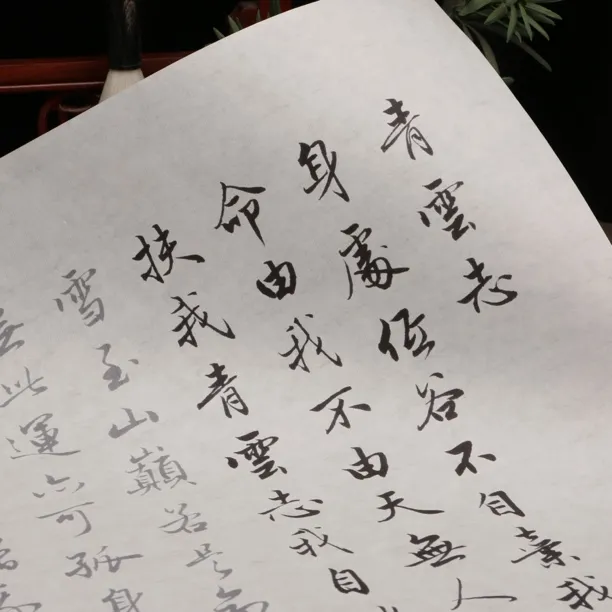 青雲志
身處低谷不自棄我
命由我不由天無人
扶我青雲志我自
雪至山巔若是命
無此運亦可孤身